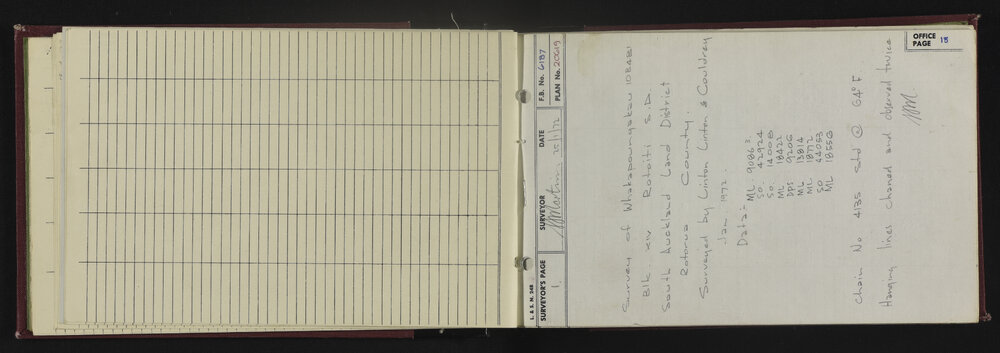 OFFICE PAGE 15
L. & S. M. 248
SURVEYOR'S PAGE
1.
SURVEYOR
DATE
25/1/72
F.B. No. 6187
PLAN No. 20619
Survey of Whakapoungakau 10B4B1
Blk XIV Rotoiti S.D.
South Auckland Land District
Rotorua County.
Surveyed by Linton Linton & Couldrey
Jan 1972.
Data:-
ML. 9086 3
So. 42924
So. 14008
ML 18422
DPS 9206
ML 13814
ML 18772
SO 44053
ML 18558
Chain No 4135 Std @ 64° F
Hanging lines chained and observed twice